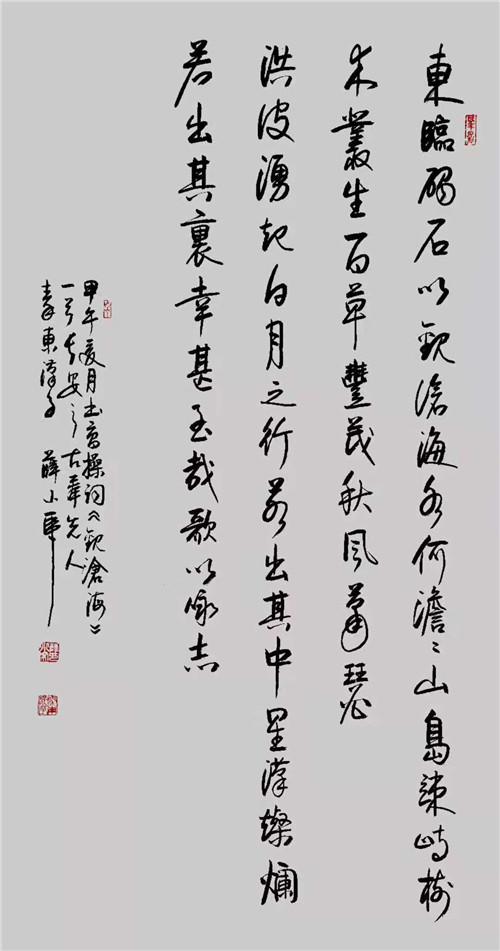 東臨碣石以觀滄海水何澹々山島竦峙樹
木叢生百草豐茂秋風蕭瑟
洪波湧起日月之行若出其中星漢燦爛
若出其裏幸甚至哉歌以詠志
甲午夏月书曹操词《觀滄海》
古奉先人
東漢子 薛小